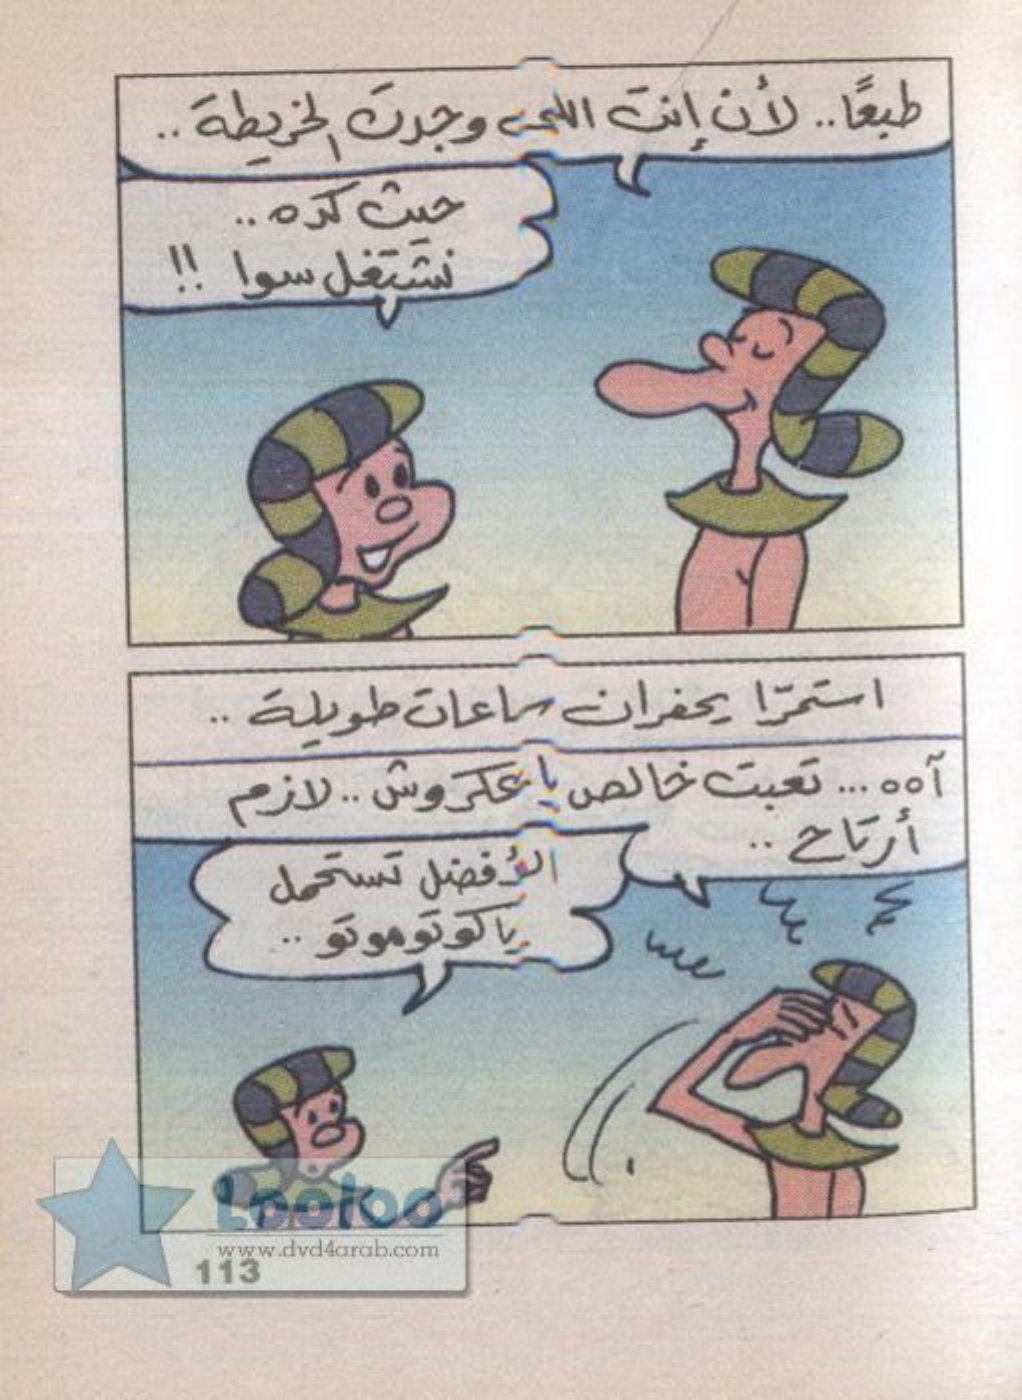 طبعًا.. لأن إنت اللى وجدت الخريطة..
حيث كده..
نشتغل سوا !!
استمرّا يحفران ساعات طويلة ..
آه ه ... تعبت خالص يا عكروش .. لازم
أرتاح ..
الأفضل تستحمل
يا كوتوموتو ..
Looloo
www.dvd4arab.com
113